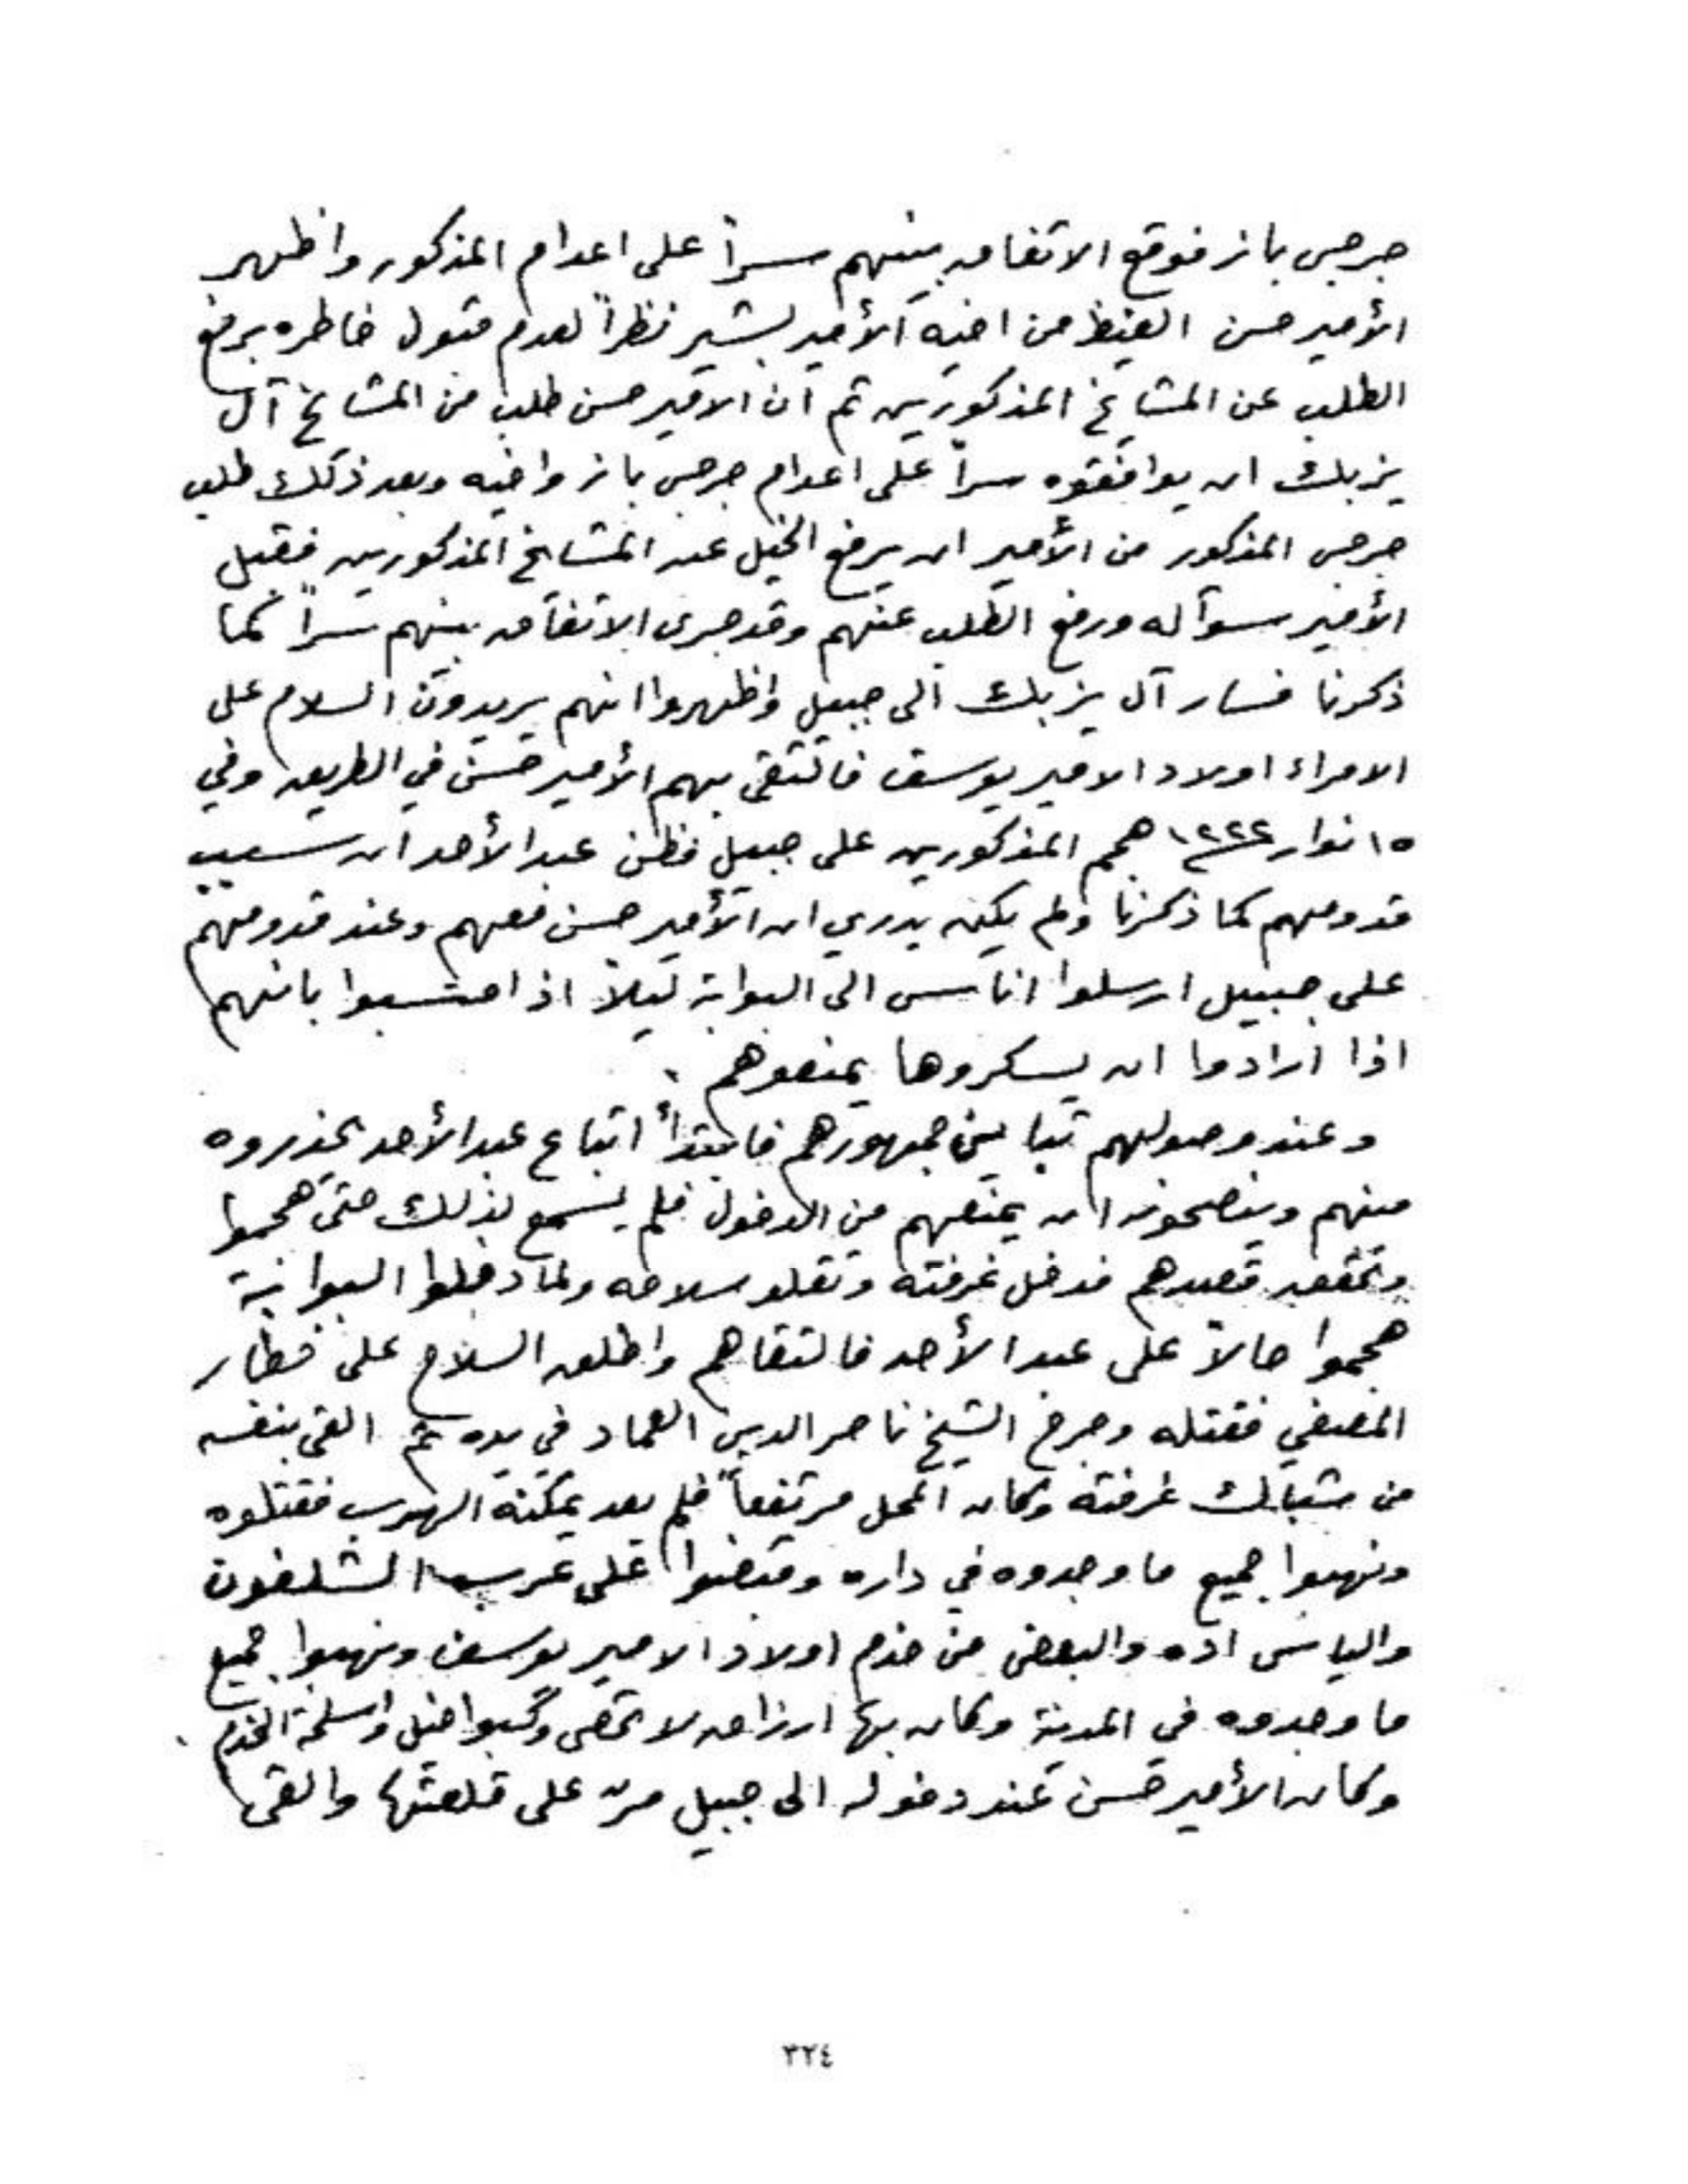 جرجس باز فوقع الاتفاق بينهم سراً على اعدام المذكور واظهر
الأمير حسن الغيظ من اخيه الأمير بشير نظراً لعدم قبول خاطره برفع
الطلب عن المشايخ المذكورين ثم ان الامير حسن طلب من المشايخ آل
يزبك ان يوافقوه سراً على اعدام جرجس باز واخيه وبعد ذلك طلب
جرجس المذكور من الأمير ان يرفع الخيل عن المشايخ المذكورين فقبل
الأمير سوآله ورفع الطلب عنهم وقد جرى الاتفاق بينهم سراً كما
ذكرنا فسار آل يزبك الى جبيل واظهروا انهم يريدون السلام على
الامراء اولاد الامير يوسف فالتقى بهم الأمير حسن في الطريق وفي
١٥ نوار ١٢٢٢ هجم المذكورين على جبيل فظن عبد الأحد ان سبب
قدومهم كما ذكرنا ولم يكن يدري ان الأمير حسن معهم وعند قدومهم
على جبيل ارسلوا اناس الى البوابة ليلاً اذا بانهم
اذا ارادوا ان يسكروها يمنعوهم .
وعند وصولهم تباين جمهورهم فابتدأ اتباع عبد الأحد يحذروه
منهم وينصحونه ان يمنعهم من الدخول فلم يسمع لذلك حتى هجموا
وتحقق قصدهم فدخل غرفته وتقلد سلاحه ولما دخلوا البوابة
هجموا حالاً على عبد الأحد فالتقاهم واطلق السلاح على خطار
فقتله وجرح الشيخ ناصر الدين العماد في يده ثم القى بنفسه
من شباك غرفته وكان المحل مرتفعاً فلم يعد يمكنه الهرب فقتلوه
ونهبوا جميع ما وجدوه في داره وقبضوا على الشلفون
والياس اده والبعض من خدم اولاد الامير يوسف ونهبوا جميع
ما وجدوه في المدينة وكان بها ارزاق لا تحصى وكسبوا خيل واسلحة الخدم
وكان الأمير حسن عند دخوله الى جبيل مرّ على قلعتها والقى
٣٢٤